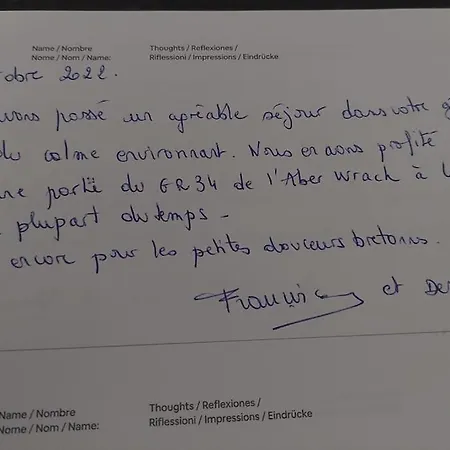 Name / Nombre
Nome / Nom / Name:
Thoughts / Reflexiones /
Riflessioni / Impressions / Eindrücke
tobre 2022.
vons passé un agréable séjour dans votre g
du calme environnant. Nous en avons profité
ne partie du GR34 de l'Aber Wrach à
plupart du temps -
encore pour les petites douceurs bretonnes.
et De
Name / Nombre
Nome / Nom / Name:
Thoughts / Reflexiones /
Riflessioni / Impressions / Eindrücke